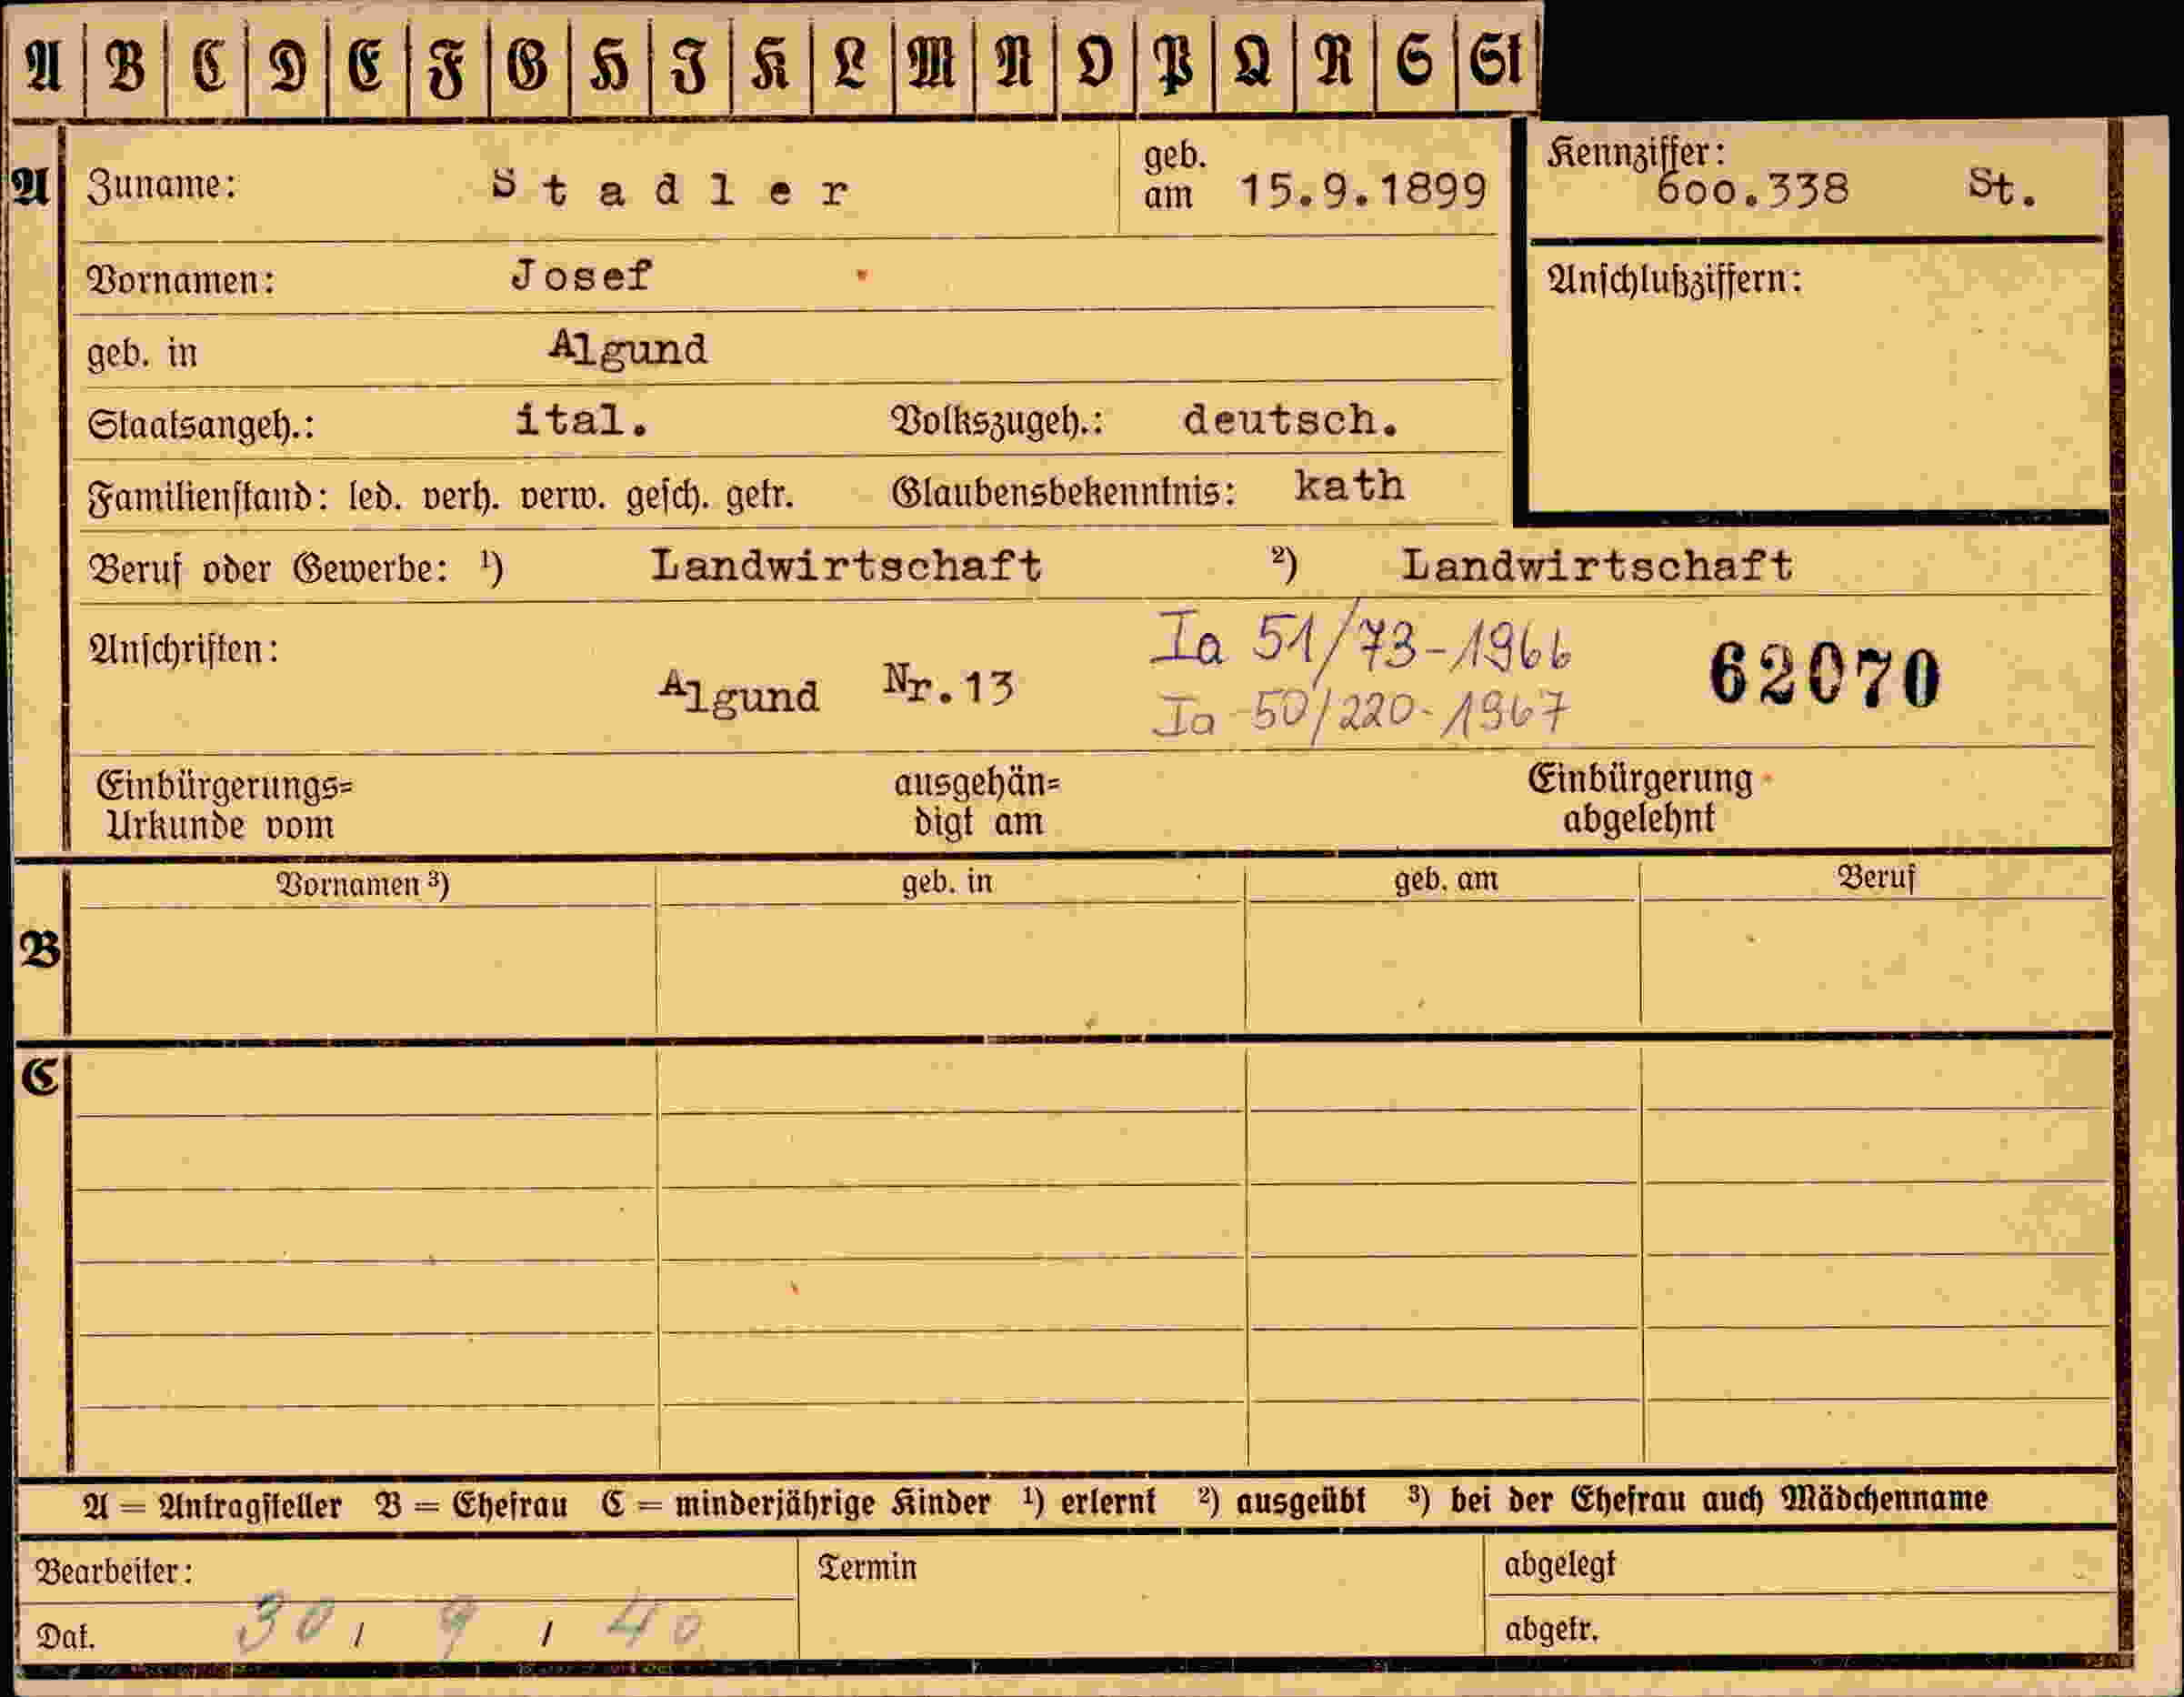 A B C D E F G H I K L M N O P Q R S St
A
Zuname: Stadler geb. am 15.9.1899
Kennziffer: 600.338 St.
Vornamen: Josef
Anschlußziffern:
geb. in Algund
Staatsangeh.: ital. Volkszugeh.: deutsch.
Familienstand: led. verh. verw. gesch. getr. Glaubensbekenntnis: kath
Beruf oder Gewerbe: ¹) Landwirtschaft ²) Landwirtschaft
Anschriften: Algund Nr.13
Ia 51/73-1966
Ia 50/220-1967
62070
Einbürgerungs= ausgehän= Einbürgerung
Urkunde vom digt am abgelehnt
Vornamen ³) geb. in geb. am Beruf
B
C
A = Antragsteller B = Ehefrau C = minderjährige Kinder ¹) erlernt ²) ausgeübt ³) bei der Ehefrau auch Mädchenname
Bearbeiter: Termin abgelegt
Dat. 30/ 9 / 40 abgetr.